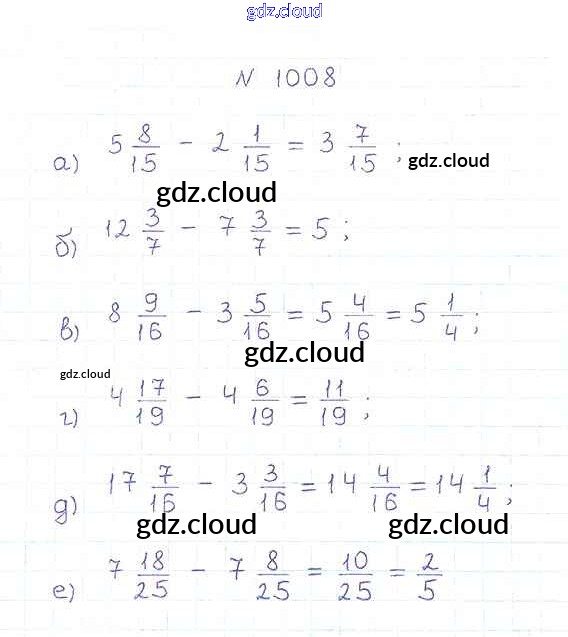 gdz.cloud
N 1008
а) 5 8/15 - 2 1/15 = 3 7/15 ; gdz.cloud
gdz.cloud
б) 12 3/7 - 7 3/7 = 5 ;
в) 8 9/16 - 3 5/16 = 5 4/16 = 5 1/4 ;
gdz.cloud
gdz.cloud
г) 4 17/19 - 4 6/19 = 11/19 ;
д) 17 7/16 - 3 3/16 = 14 4/16 = 14 1/4 ;
gdz.cloud gdz.cloud
е) 7 18/25 - 7 8/25 = 10/25 = 2/5